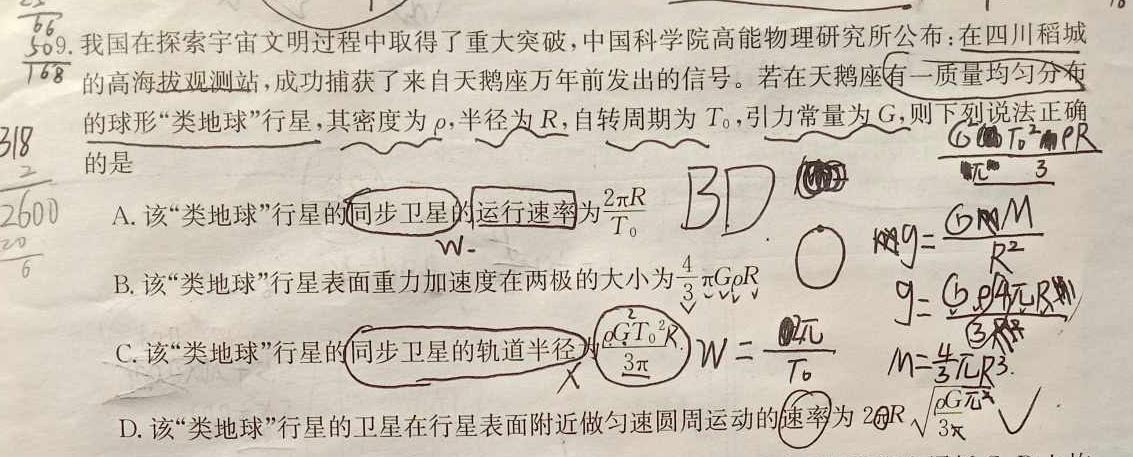 66
50
168
9. 我国在探索宇宙文明过程中取得了重大突破,中国科学院高能物理研究所公布:在四川稻城
的高海拔观测站,成功捕获了来自天鹅座万年前发出的信号。若在天鹅座有一质量均匀分布
的球形“类地球”行星,其密度为 ρ,半径为 R,自转周期为 T₀,引力常量为 G,则下列说法正确
的是
318
2
2600
20
6
A. 该“类地球”行星的同步卫星的运行速率为 2πR/T₀
BD
W-
g = GM/R²
B. 该“类地球”行星表面重力加速度在两极的大小为 4/3 πGρR
C. 该“类地球”行星的同步卫星的轨道半径为 ρGT₀²R/3π
X
W = 2π/T₀
M = 4/3 πR³.
D. 该“类地球”行星的卫星在行星表面附近做匀速圆周运动的速率为 2πR√(ρG/3π)
✓